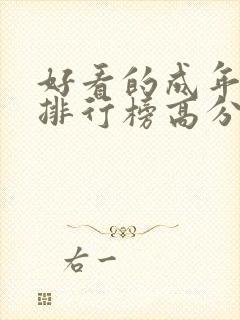 好看的成年
排行榜高分
右一